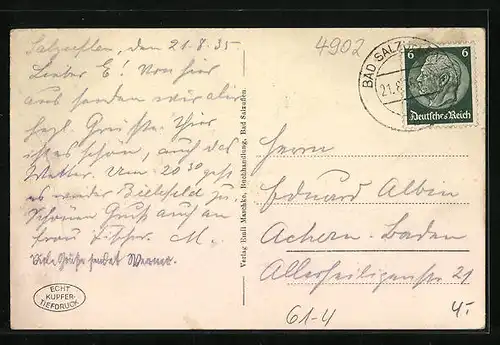 Salzuflen, den 21.8.35
Lieber E! Von hier
aus senden wir dir
hzgl. Grüße. Hier
ist es schön, auch das
Wetter. Um 20 30 geht
es wieder Bielefeld zu.
Schönen Gruß auch an
Frau Fischer. M.
Viele Grüße sendet Werner.
ECHT
KUPFER-
TIEFDRUCK
Verlag Emil Maschke, Buchhandlung, Bad Salzuflen.
4902
BAD SALZU
21.8.
6 6
Deutsches Reich
Herrn
Eduard Alben
Achern-Baden
Allerheiligenstr 21
61-4
4.-